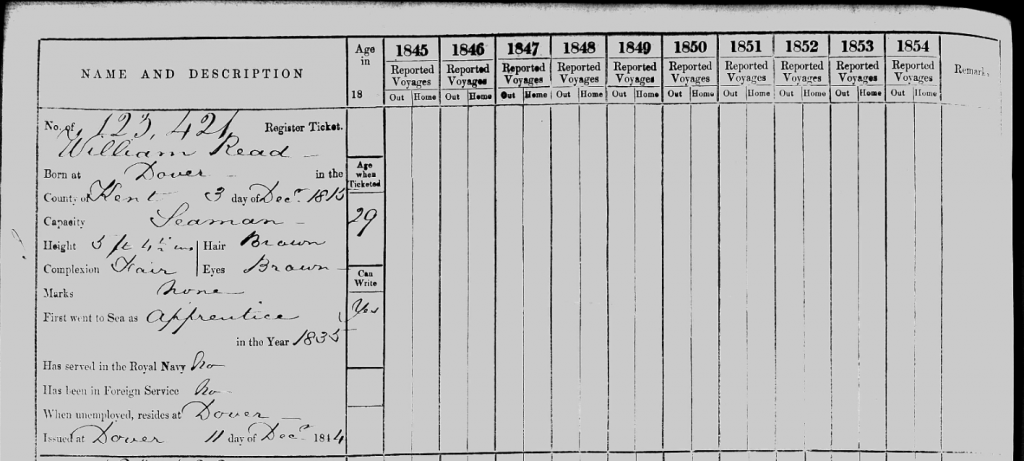 NAME AND DESCRIPTION
Age in 18
1845 1846 1847 1848 1849 1850 1851 1852 1853 1854
Reported Voyages Reported Voyages Reported Voyages Reported Voyages Reported Voyages Reported Voyages Reported Voyages Reported Voyages Reported Voyages Reported Voyages
Remarks
Out Home Out Home Out Home Out Home Out Home Out Home Out Home Out Home Out Home Out Home
No. of 123,421 Register Ticket.
William Read
Born at Dover in the
County of Kent 3 day of Decr. 1815
Capacity Seaman
Height 5 ft 4½ ins Hair Brown
Complexion Fair Eyes Brown
Marks none
First went to Sea as Apprentice
in the Year 1835
Has served in the Royal Navy No
Has been in Foreign Service No
When unemployed, resides at Dover
Issued at Dover 11 day of Decr. 1844
Age when Ticketed
29
Can Write
Yes